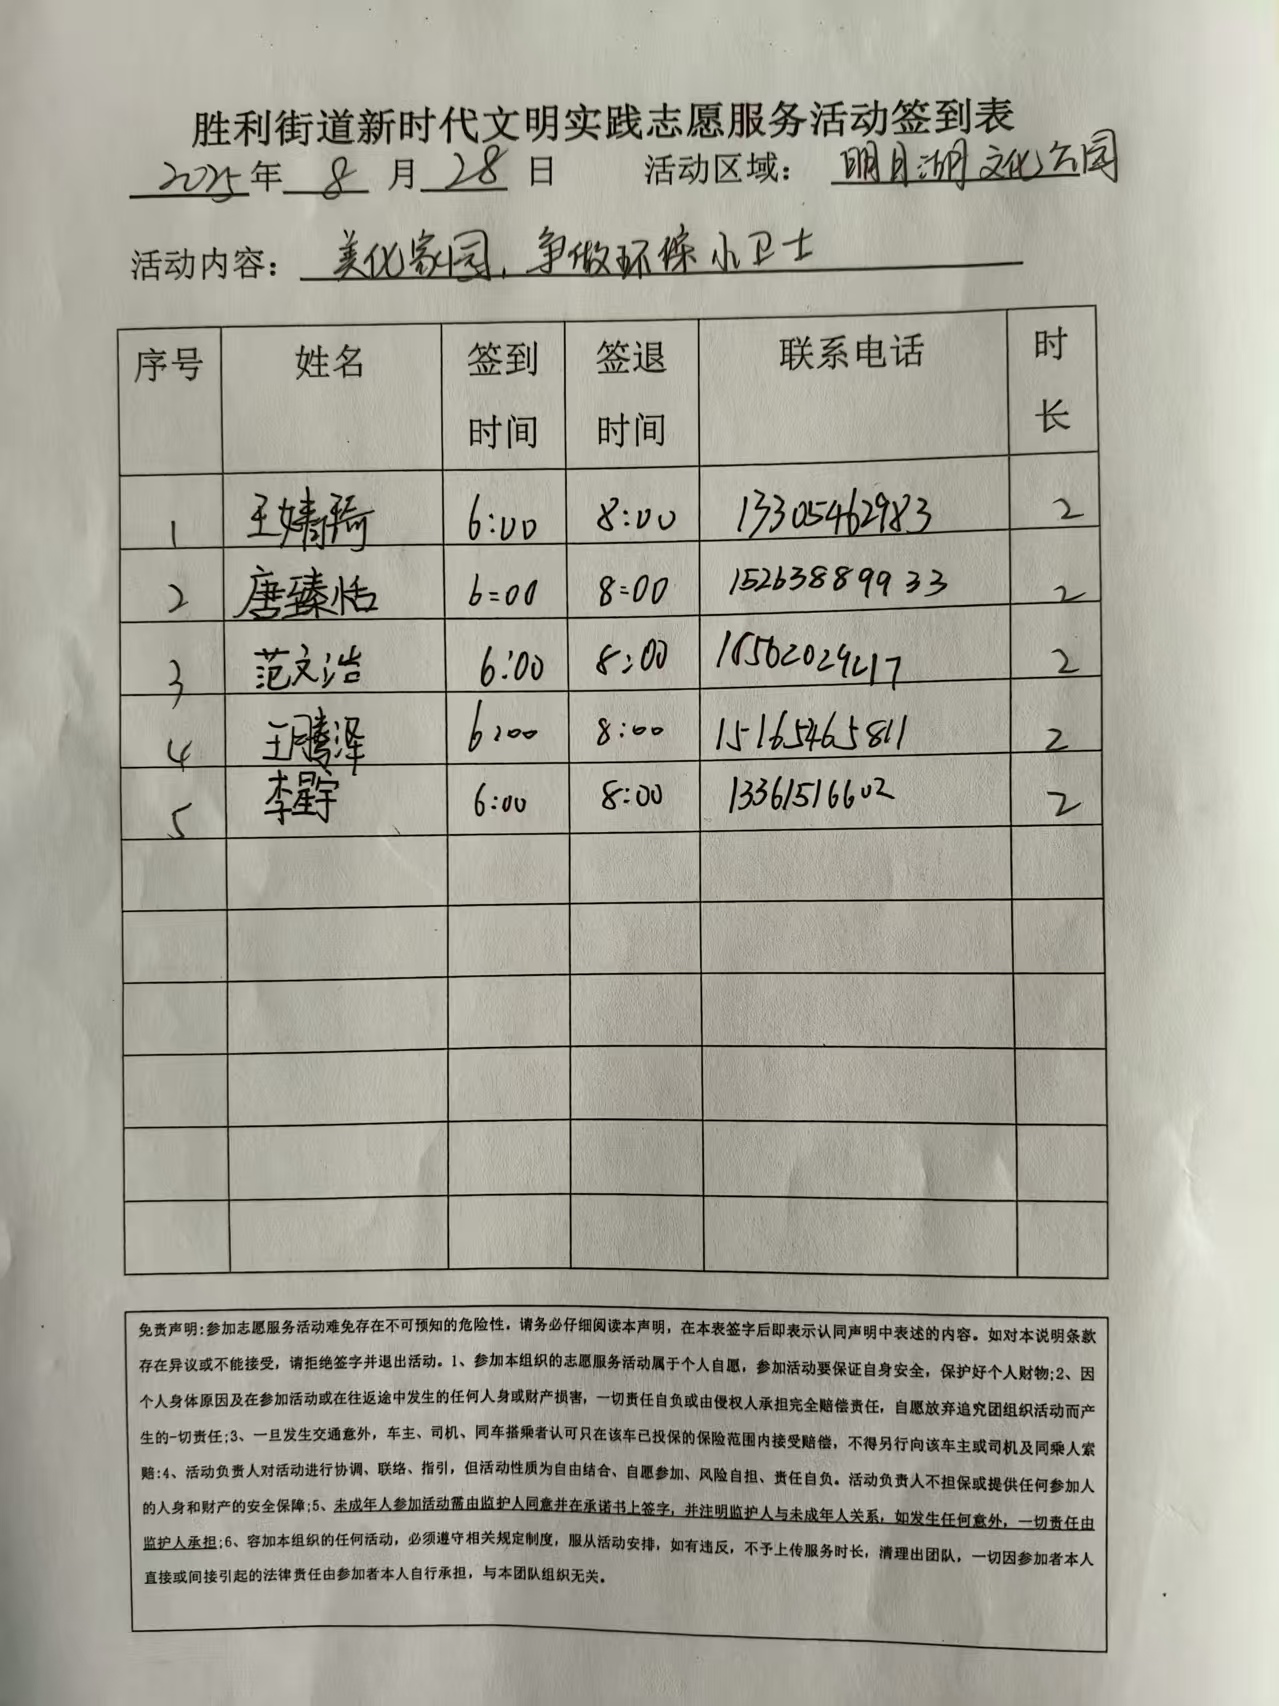 胜利街道新时代文明实践志愿服务活动签到表
2025年 8 月 28 日 活动区域：明月湖文化公园
活动内容：美化家园，争做环保小卫士
序号 姓名 签到时间 签退时间 联系电话 时长
1 王婧琦 6:00 8:00 13305462983 2
2 唐臻恬 6:00 8:00 15263889933 2
3 范文浩 6:00 8:00 2
4 王腾泽 6:00 8:00 15165465811 2
5 李星宇 6:00 8:00 13361516602 2
免责声明:参加志愿服务活动难免存在不可预知的危险性。请务必仔细阅读本声明，在本表签字后即表示认同声明中表述的内容。如对本说明条款
存在异议或不能接受，请拒绝签字并退出活动。1、参加本组织的志愿服务活动属于个人自愿，参加活动要保证自身安全，保护好个人财物;2、因
个人身体原因及在参加活动或在往返途中发生的任何人身或财产损害，一切责任自负或由侵权人承担完全赔偿责任，自愿放弃追究团组织活动而产
生的一切责任;3、一旦发生交通意外，车主、司机、同车搭乘者认可只在该车已投保的保险范围内接受赔偿，不得另行向该车主或司机及同乘人索
赔:4、活动负责人对活动进行协调、联络、指引，但活动性质为自由结合、自愿参加、风险自担、责任自负。活动负责人不担保或提供任何参加人
的人身和财产的安全保障;5、未成年人参加活动需由监护人同意并在承诺书上签字，并注明监护人与未成年人关系，如发生任何意外，一切责任由
监护人承担;6、容加本组织的任何活动，必须遵守相关规定制度，服从活动安排，如有违反，不予上传服务时长，清理出团队，一切因参加者本人
直接或间接引起的法律责任由参加者本人自行承担，与本团队组织无关。